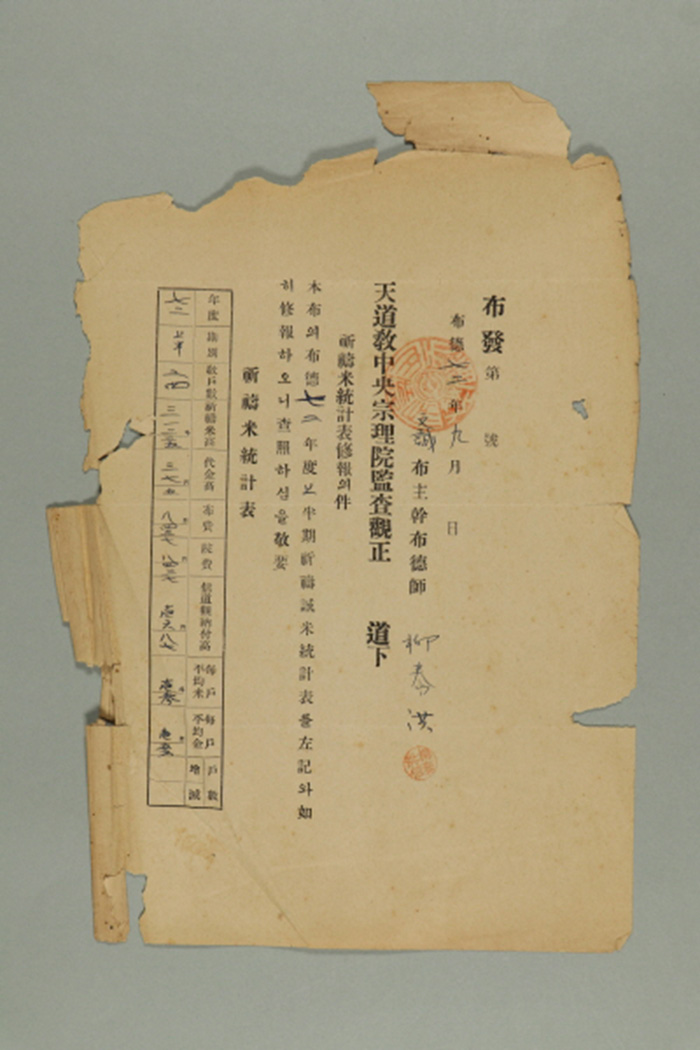 布發第 號
布德七二年九月 日
文誠布主幹布德師 柳春洪
天道敎中央宗理院監査觀正 道下
祈禱米統計表修報의件
本布의布德七二年度上半期祈禱誠米統計表를左記와如
히修報하오니査照하심을敬要
祈禱米統計表
年度 期別 敎戶數 祈禱米高 代金高 布費 院費 個道額納付高 每戶平均米 每戶平均金 戶數增減
七二 上半 六四 三一二五 三七五